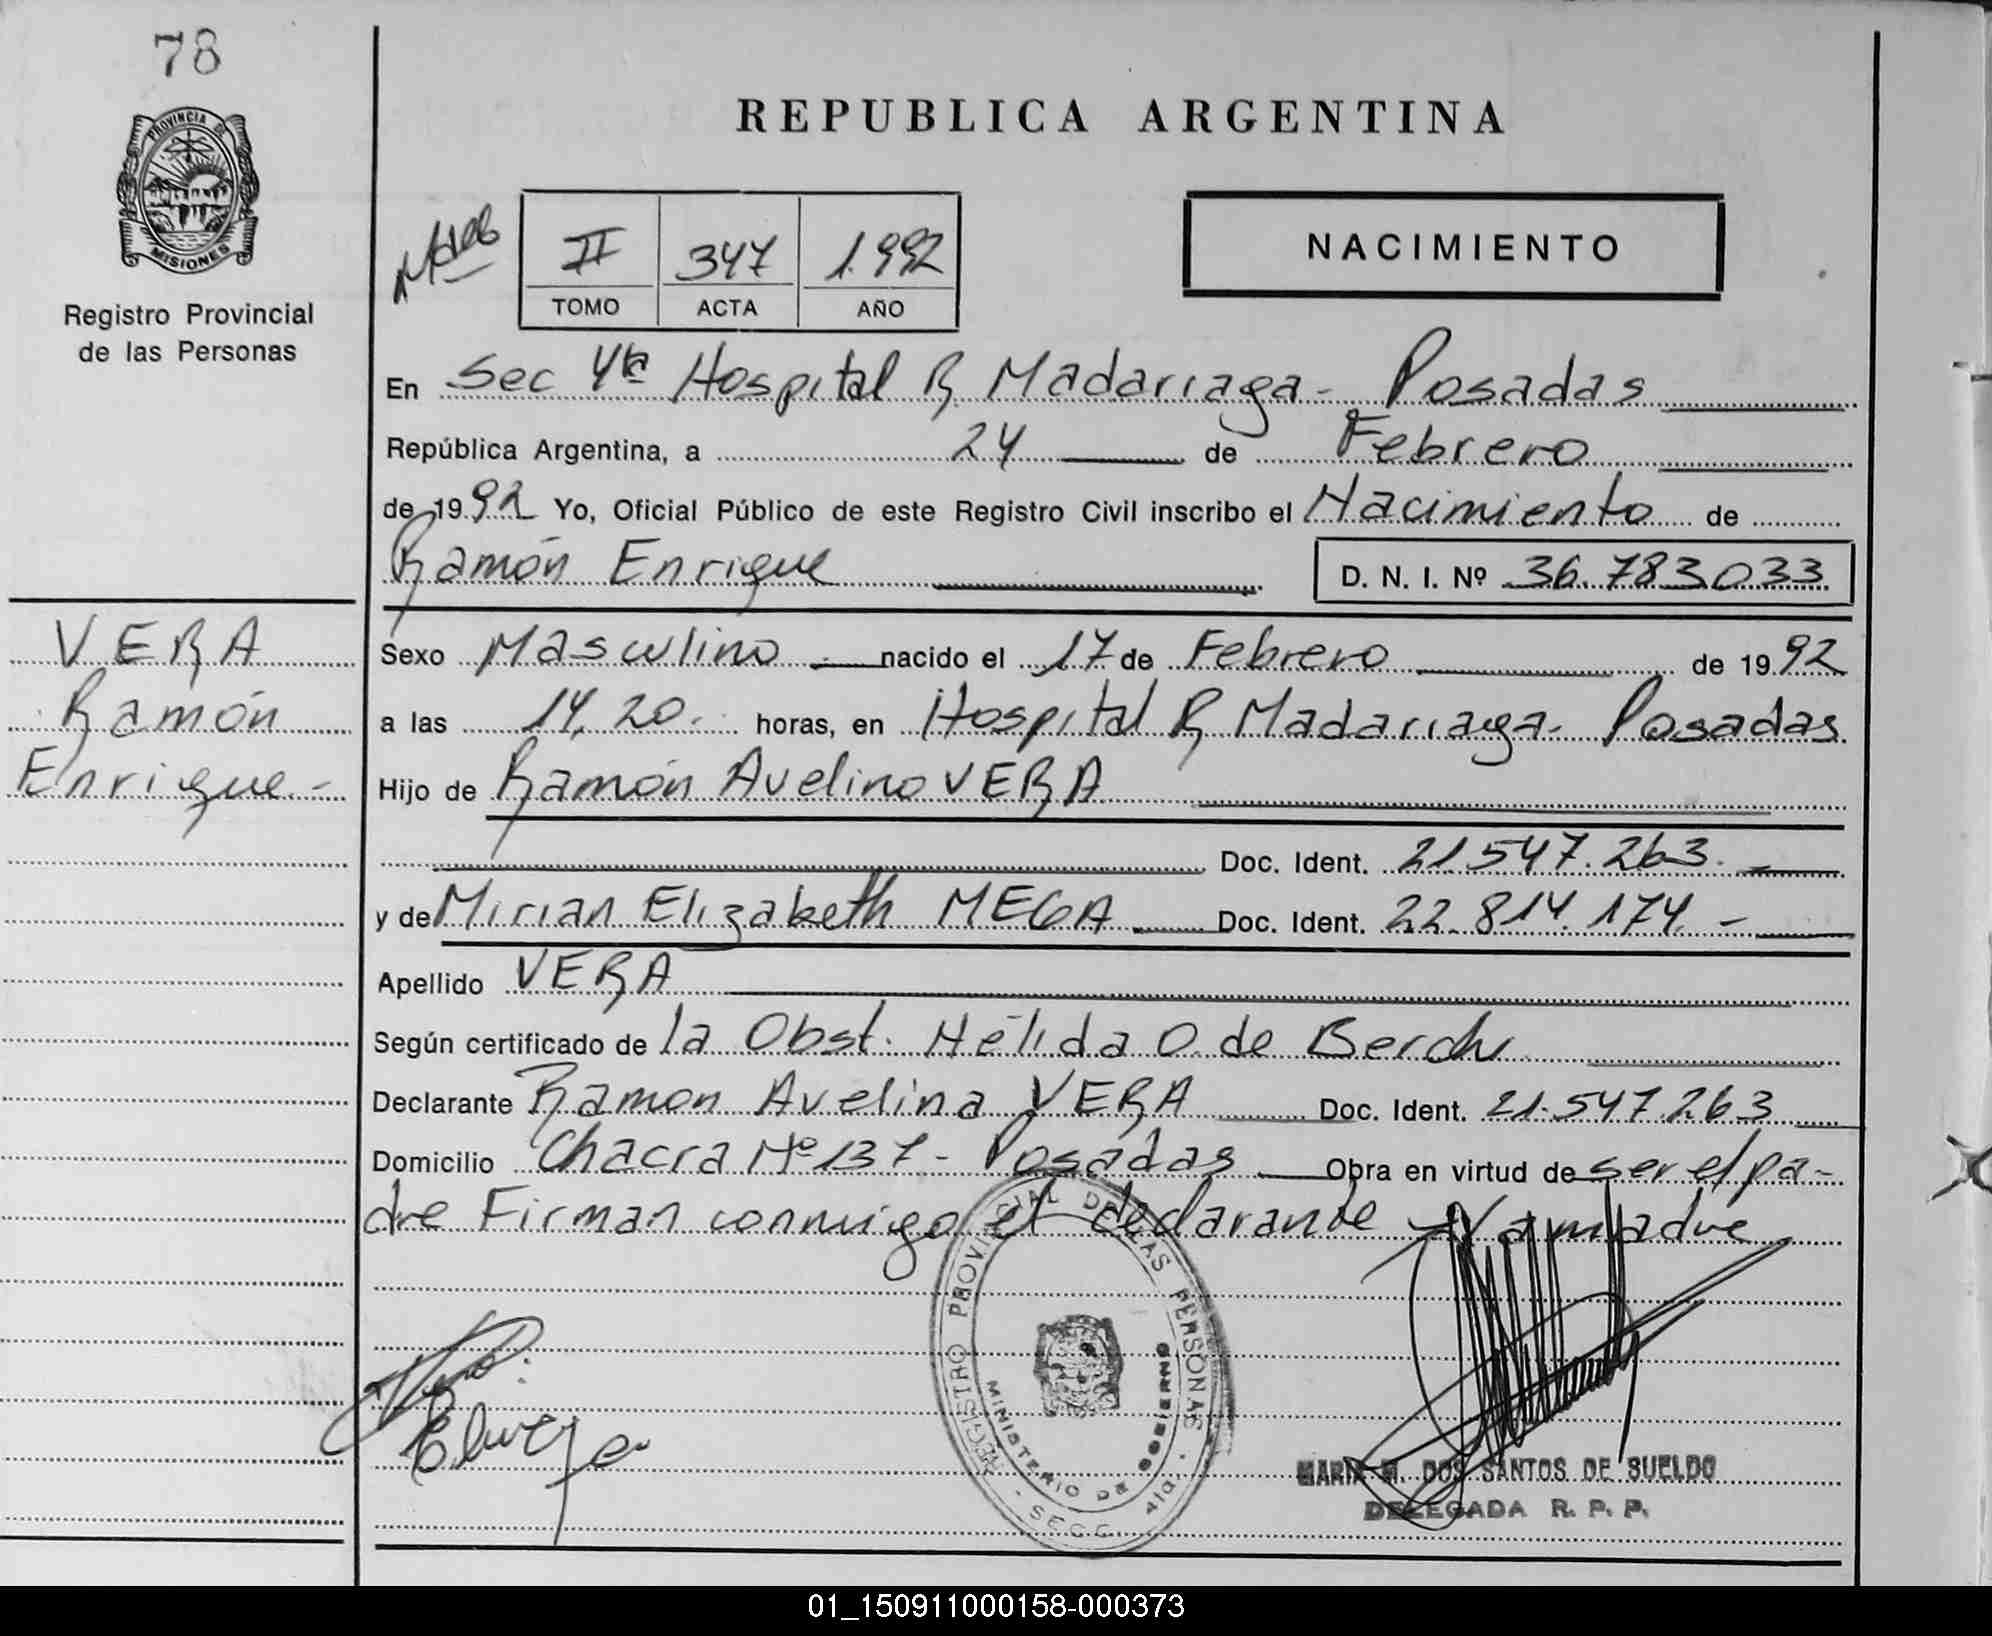 78
PROVINCIA DE
MISIONES
Registro Provincial
de las Personas
REPUBLICA ARGENTINA
II 347 1992
TOMO ACTA AÑO
NACIMIENTO
En Sec 4ta Hospital R Madariaga - Posadas
República Argentina, a 24 de Febrero
de 1992 Yo, Oficial Público de este Registro Civil inscribo el Nacimiento de
Ramón Enrique D. N. I. Nº 36.783033
VERA
Ramón
Enrique.-
Sexo Masculino nacido el 17 de Febrero de 1992
a las 14,20. horas, en Hospital R Madariaga- Posadas
Hijo de Ramón Avelino VERA
Doc. Ident. 21.547.263.-
y de Mirian Elizabeth MEGA Doc. Ident. 22.814.174.-
Apellido VERA
Según certificado de la Obst. Nélida O. de
Declarante Ramon Avelina VERA Doc. Ident. 21.547.263
Domicilio Chacra Nº 137 - Posadas Obra en virtud de ser el pa-
dre Firman conmigo el declarante y la madre
REGISTRO PROVINCIAL DE LAS PERSONAS
MINISTERIO DE GOBIERNO
SECC. 4ta.
MARIA M. DOS SANTOS DE SUELDO
DELEGADA R. P. P.
01_150911000158-000373